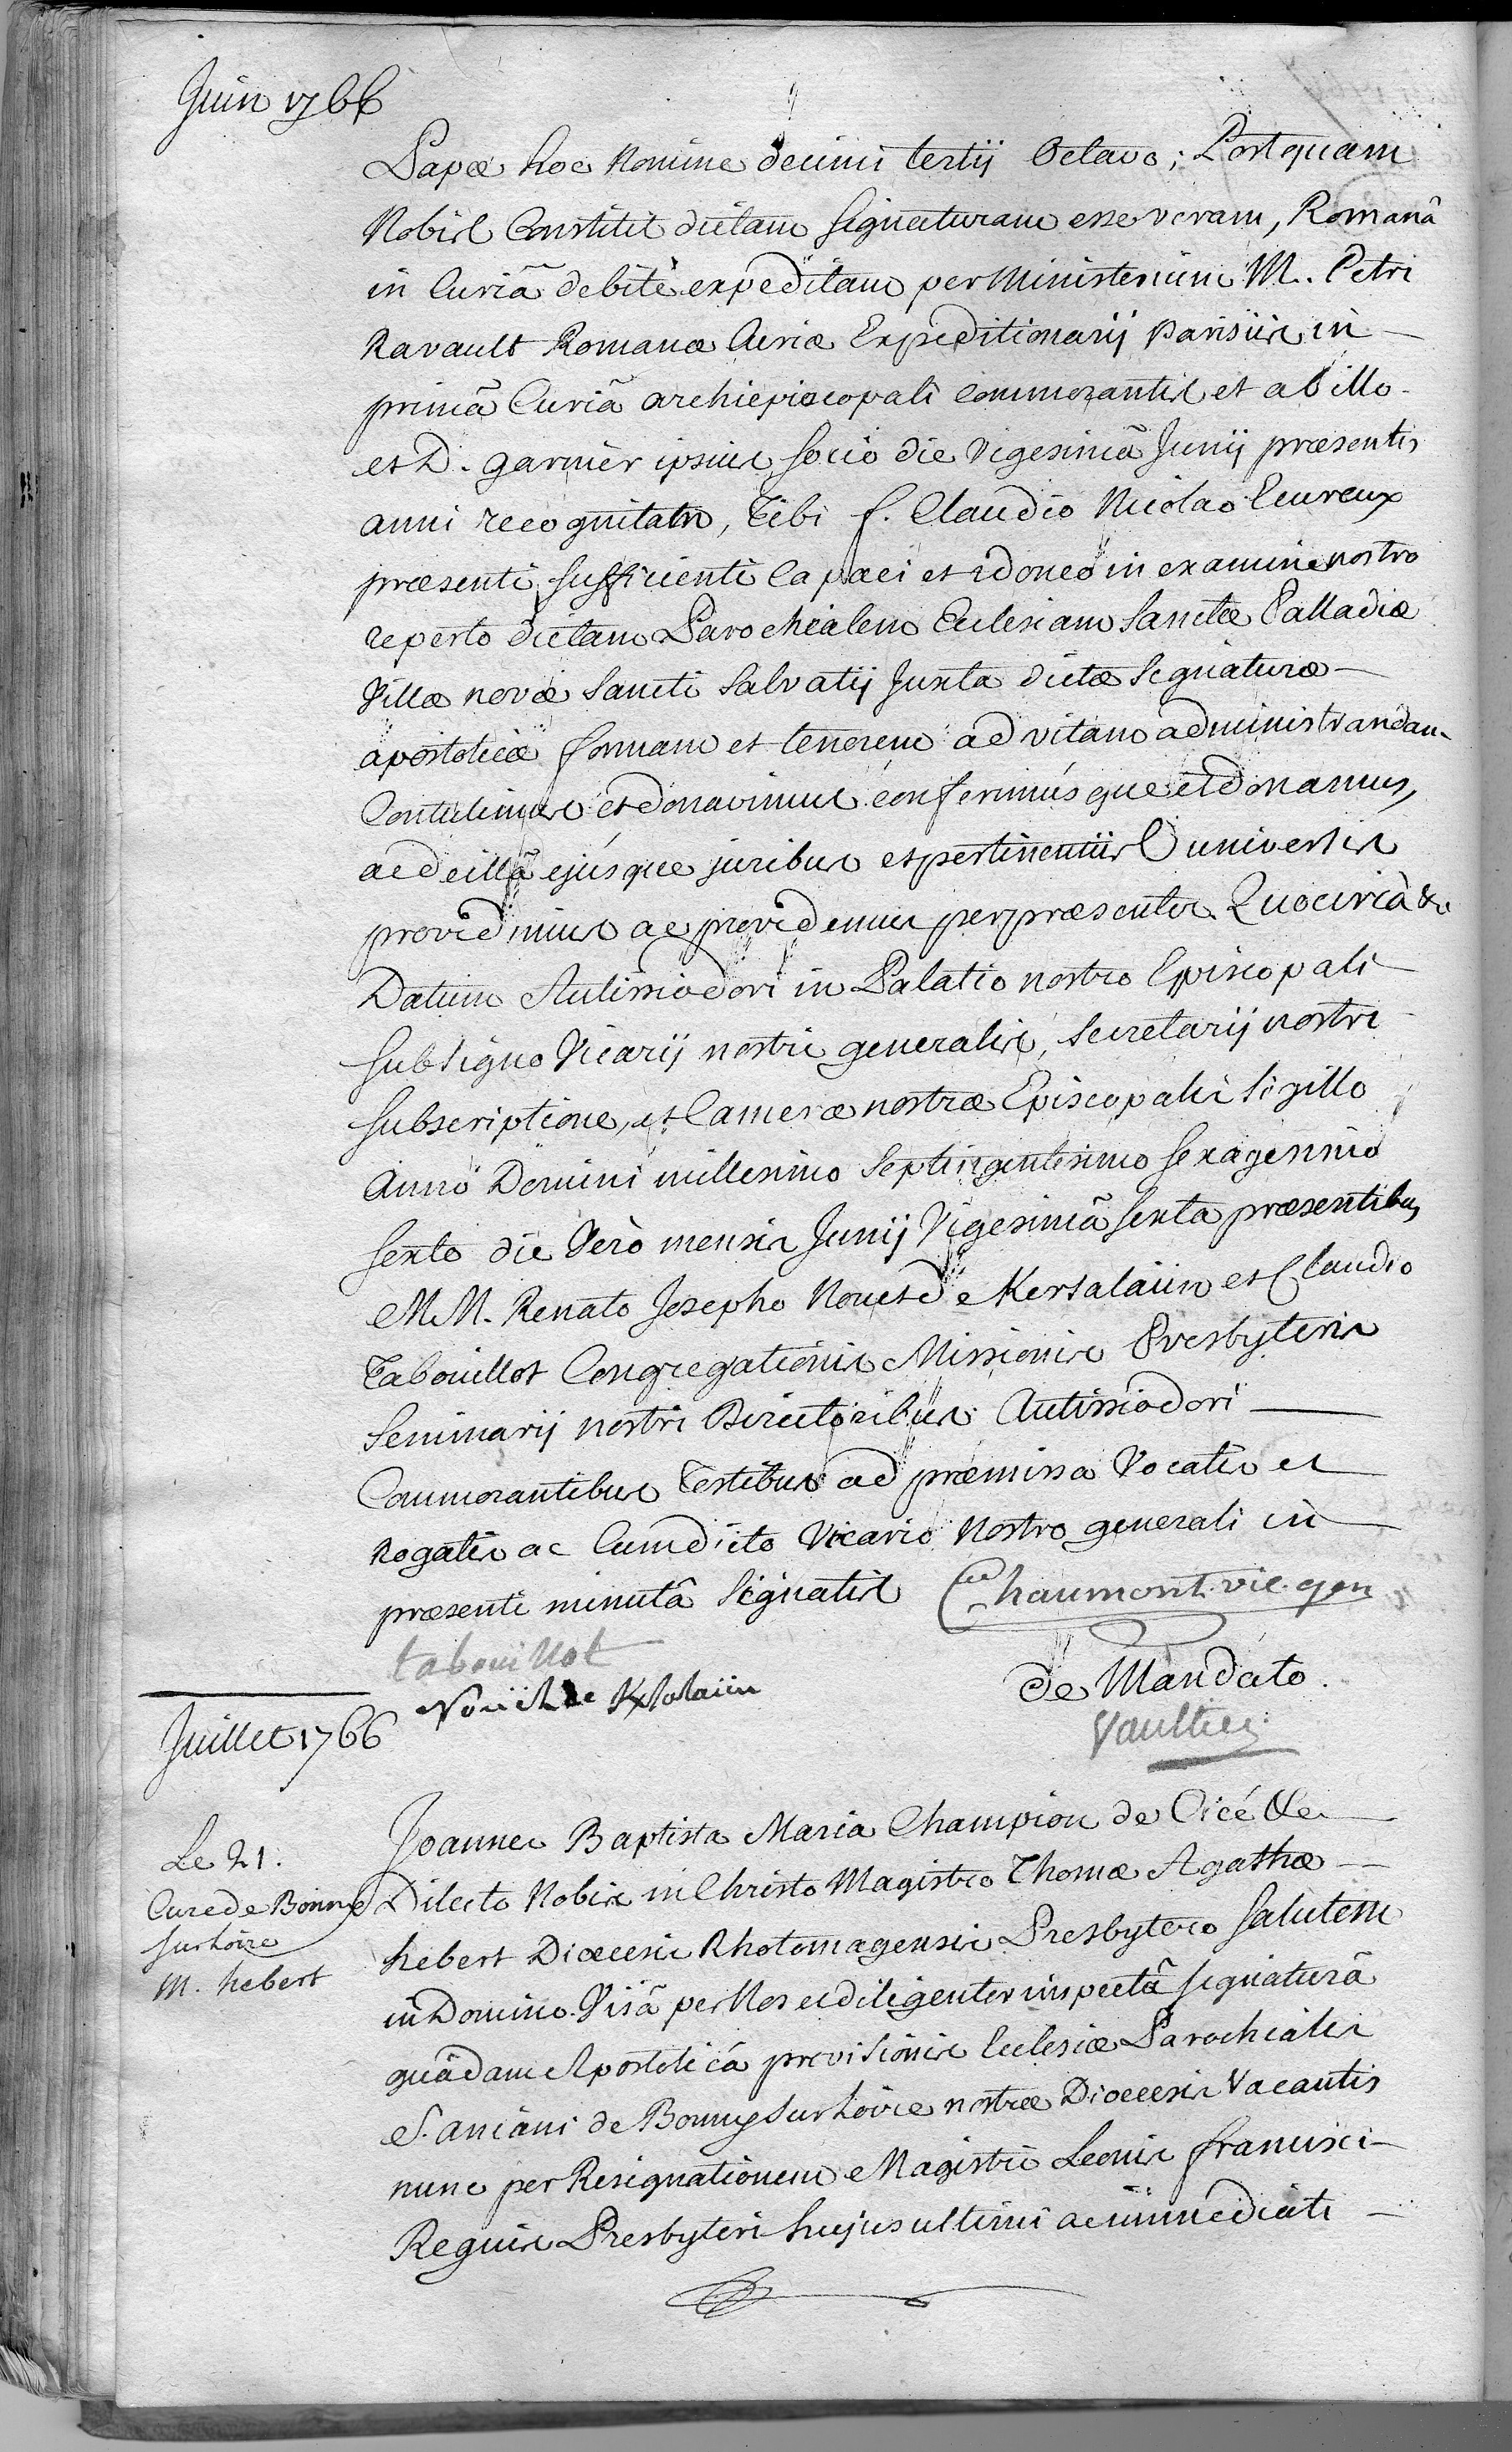 Juin 1766
Papæ hoc Nomine decimi tertij Octavo; Postquam
Nobis Constitit dictam signaturam esse veram, Romanâ
in Curiâ debitè expeditam per Ministerium M. Petri
Ravault Romanæ Curiæ Expeditionarij Parisiis in
primâ Curiâ archiepiscopali commorantis et ab illo
et D. garnier ipsius socio die vigesimâ Junij præsentis
anni recognitam, Tibi f. Claudio Nicolao Lecureux
præsenti, sufficienti capaci et idoneo in examine nostro
reperto dictam Parochialem Ecclesiam Sanctæ Palladiæ
Villæ novæ Sancti Salvatij Juxta dictæ signaturæ
apostolicæ formam et tenorem ad vitam administrandam
Contulimus et donavimus conferimúsque et donamus,
ac de illâ ejúsque juribus et pertinentiis universis
providimus ac providemus per præsentes. Quocircà &c
Datum Autissiodori in Palatio nostro Episcopali
sub signo Vicarij nostri generalis, secretarij nostri
subscriptione, et Cameræ nostræ Episcopalis sigillo
Anno Domini millesimo septingentesimo sexagesimo
sexto die Verò mensis Junij Vigesimâ sexta præsentibus
M.M. Renato Josepho Nouet de Kersalaün et Claudio
Tabouillot Congregationis Missionis Presbyteris
Seminarij nostri Directoribus Autissiodori
Commorantibus Testibus ad præmissa Vocatis et
Rogatis ac Cum dicto Vicario Nostro generali in
præsenti minutâ signatis Chaumont vic. gen
tabouillot
Nouët de Kersalaün
de Mandato.
Vaultier
Juillet 1766
Le 21.
Cure de Bonny
sur Loire
M. hebert
Joannes Baptista Maria Champion de Cicé &c
Dilecto Nobis in Christo Magistro Thomæ Agathæ
hebert Diœcesis Rhotomagensis Presbytero salutem
in Domino. Visâ per Nos et diligenter inspectâ signaturâ
quâdam Apostolicâ provisionis Ecclesiæ Parochialis
S. aniani de Bonny sur Loire nostræ Diœcesis Vacantis
nunc per Resignationem Magistri Leonis francisci
Regnis Presbyteri hujus ultimi ac immediati